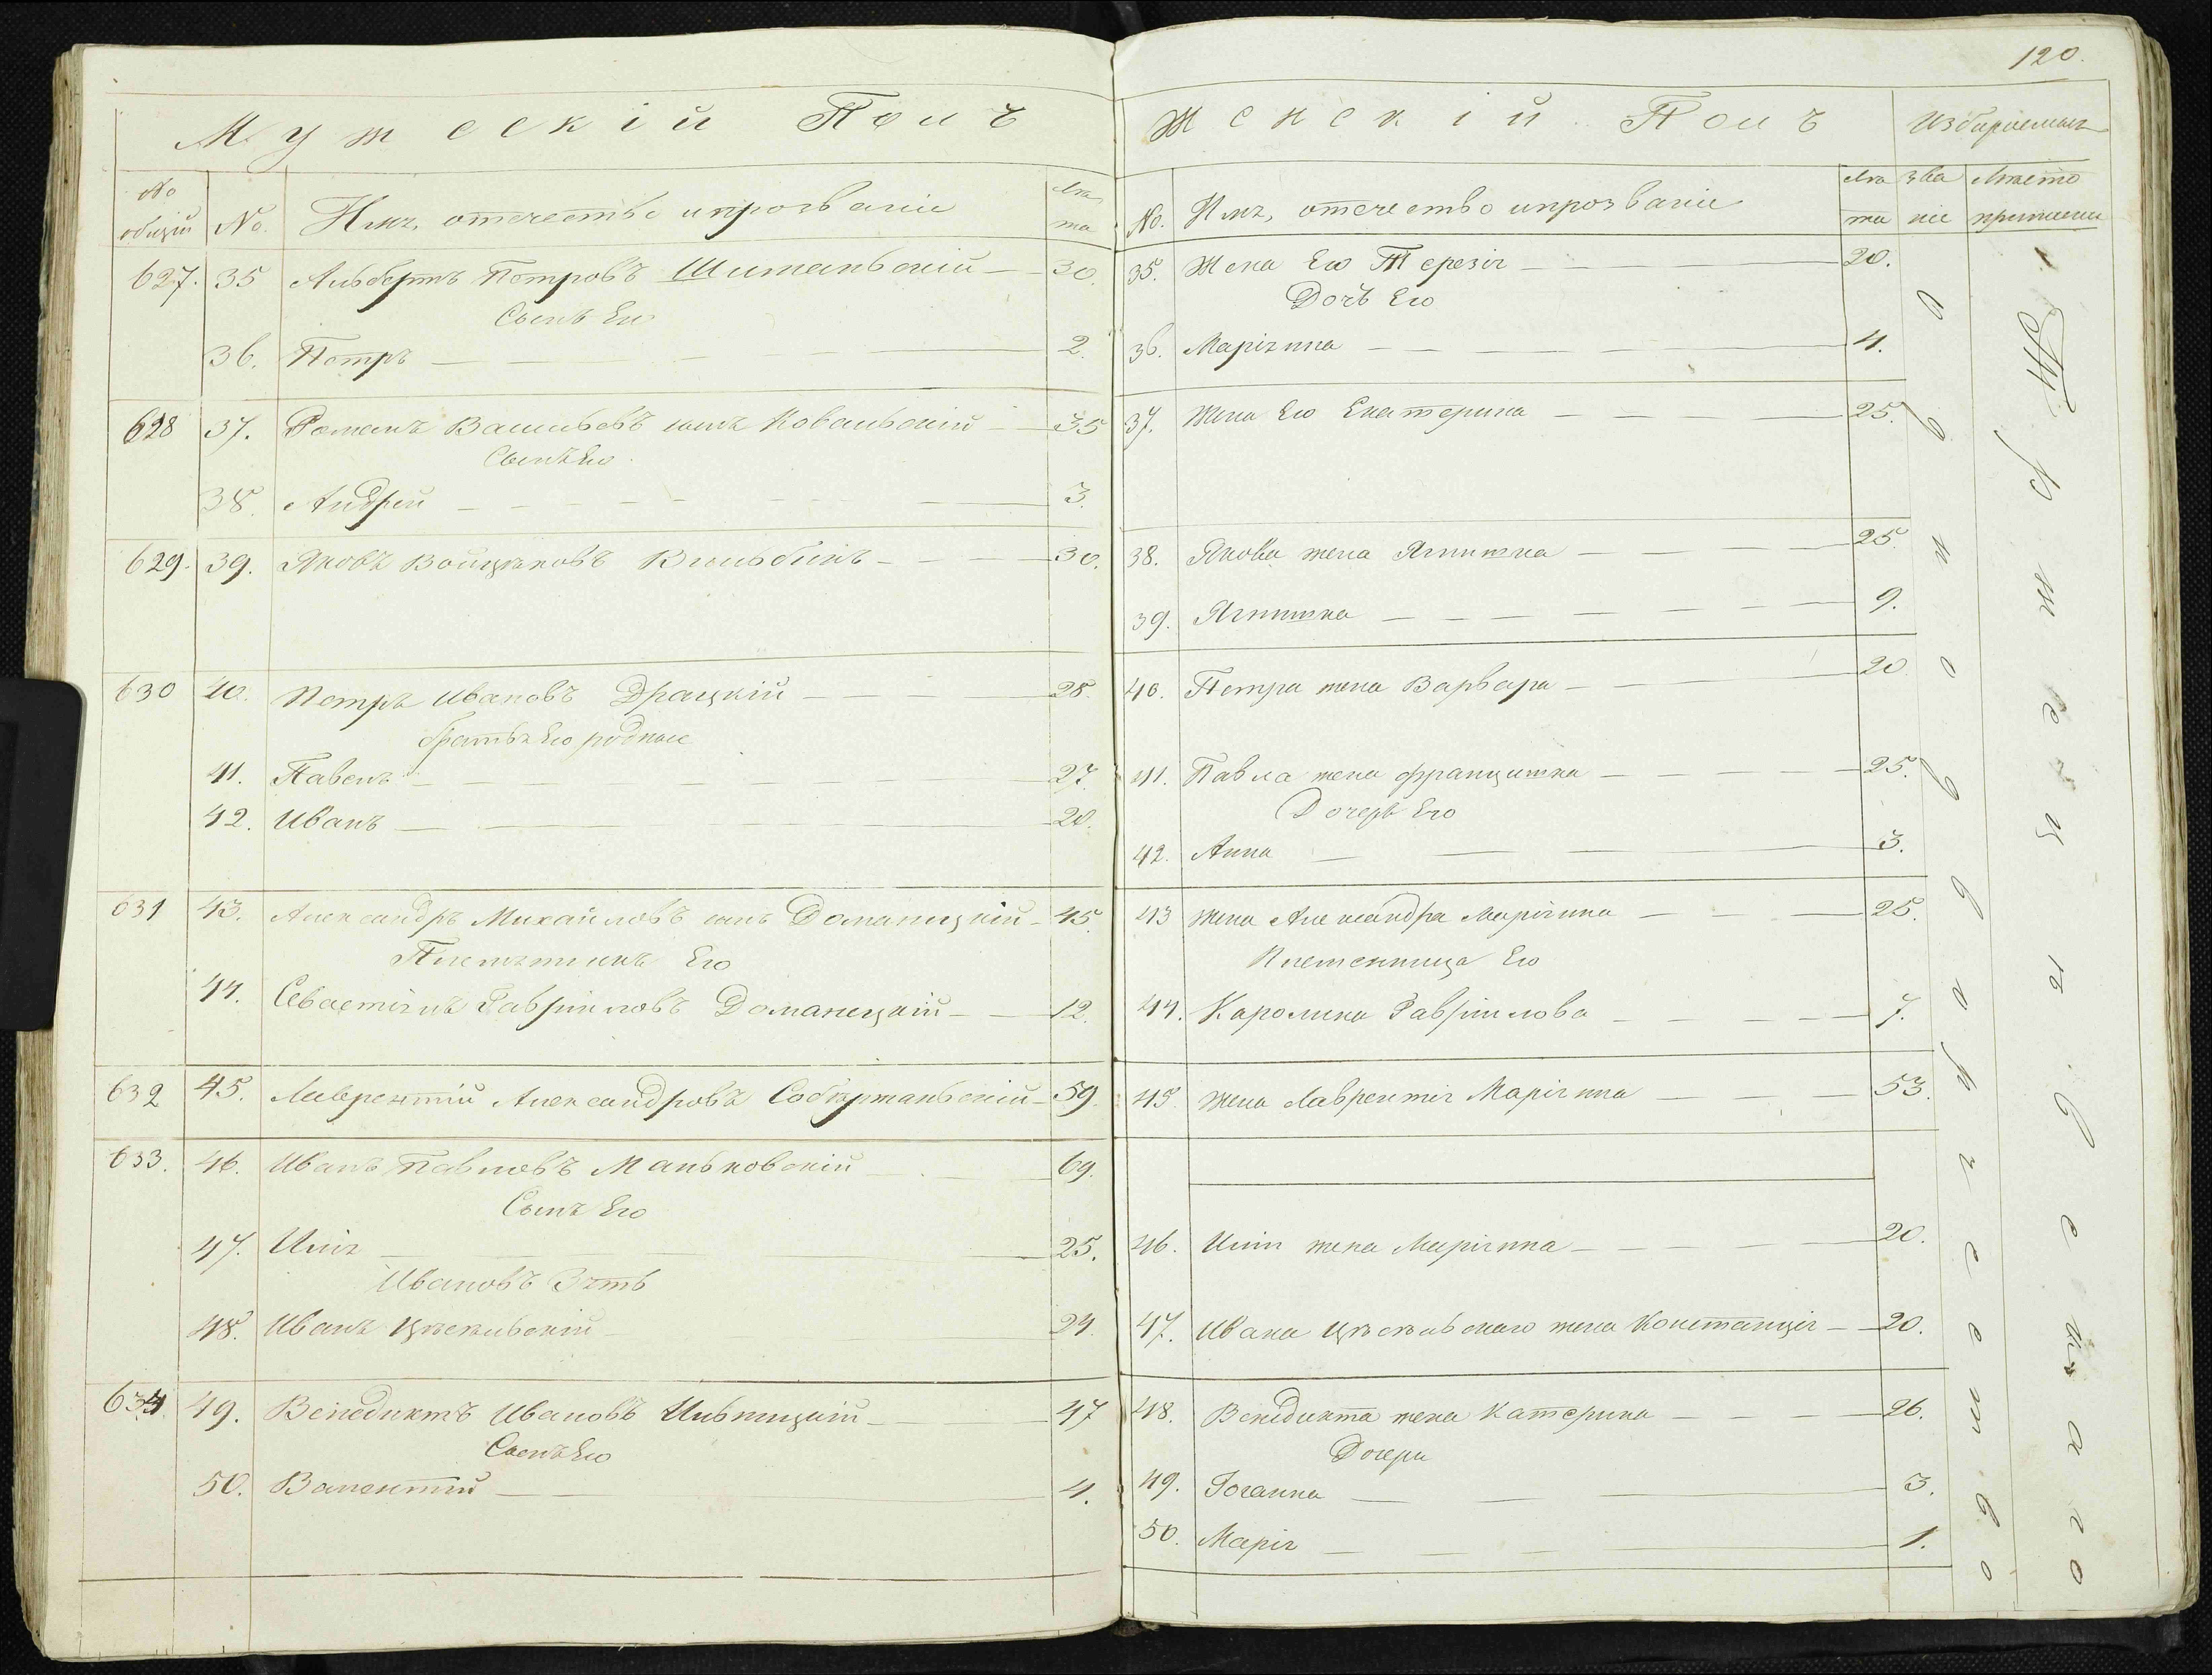 120.
Мужескій Полъ
No общій No. Имя, отечество и прозваніе Лѣта
627. 35 Альбертъ Петровъ Шиманьскій 30.
Сынъ Его
36. Петръ 2.
628 37. Романъ Васильевъ сынъ Ковальскій 35
Сынъ Его
38. Андрей 3.
629. 39. Яковъ Войцѣховъ 30.
630 40. Петръ Ивановъ Драцкій 28.
братья Его родные
41. Павелъ 27.
42. Иванъ 20.
631 43. Александръ Михайловъ сынъ Доманицкій 45.
Племянникъ Его
44. Севастіянъ Гавріиловъ Доманецкій 12.
632 45. Лаврентій Александровъ 59.
633. 46. Иванъ Павловъ Маньковскій 69.
Сынъ Его
47. Илія 25.
Ивановъ Зять
48. Иванъ 24.
634 49. Венедиктъ Ивановъ 47
Сынъ Его
50. Валентій 4.
Женскій Полъ Избираемыя
No. Имя, отечество и прозваніе Лѣта званіе Мѣсто приписки
35. Жена Его Терезія 20.
Дочь Его
36. Маріянна 4.
37. Жена Его Екатерина 25.
38. Якова жена Ягнишка 25.
39. Ягнишка 9.
40. Петра жена Варвара 20
41. Павла жена Францишка 25.
Дочерь Его
42. Анна 3.
43 Жена Александра Маріянна 25.
Племенница Его
44. Каролина Гавріилова 7.
45. Жена Лаврентія Маріянна 53.
46. Иліи жена Маріянна 20.
47. Ивана жена Констанція 20.
48. Венедикта жена Катерина 26.
Дочери
49. Іоганна 3.
50. Марія 1.
однодворчество